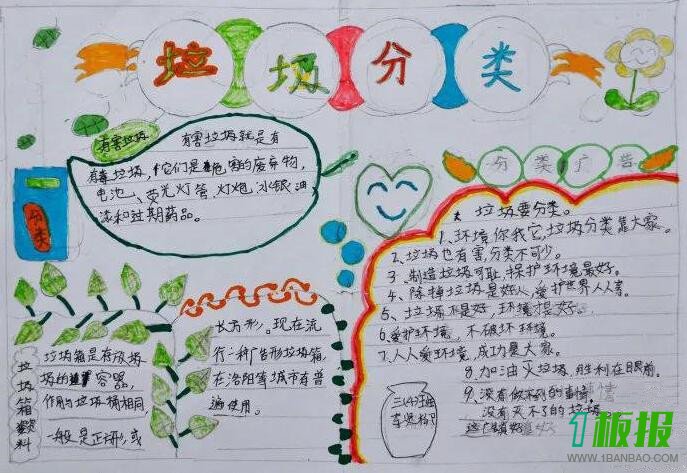 垃圾分类
有害垃圾
有害垃圾就是有
毒垃圾,它们是危害的废弃物,
电池、荧光灯管、灯炮、水银油
漆和过期药品。
分类
垃圾箱
垃圾箱是存放垃
圾的容器,
作用与垃圾桶相同,
一般是正形,或
长方形。现在流
行一种广告形垃圾箱,
在洛阳等城市有普
遍使用。
分类广告
垃圾要分类。
1、环境你我它,垃圾分类靠大家。
2、垃圾也有害,分类不可少。
3、制造垃圾可耻,保护环境最好。
4、除掉垃圾是好人,爱护世界人人喜。
5、垃圾不是好,环境才是好。
6、爱护环境,不破坏环境。
7、人人爱环境,成功是大家。
8、加油灭垃圾,胜利在眼前。
9、没有做不到的事情,
没有灭不了的垃圾
三(4)班
1板报
WWW.1BANBAO.COM